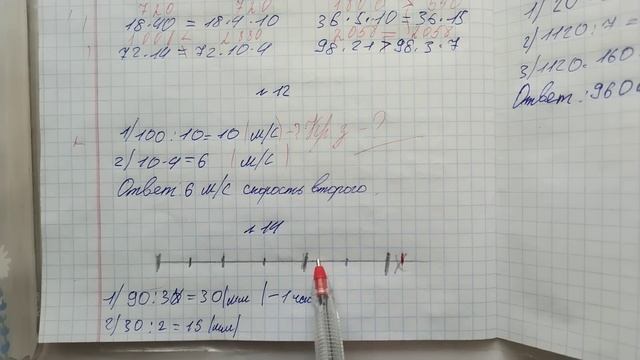 720 720
18·40 = 18·4·10
36·5·10 = 36·15
72·14 = 72·10·4
2058 = 2058
98·21 > 98·3·7
1) 20
2) 1120:7 =
3) 1120-160
Ответ: 960
№12
1) 100:10=10 (м/с) - ?
2) 10-4=6 (м/с)
Ответ 6 м/с скорость второго.
№14
1) 90:3=30 (мм) - 1 час
2) 30:2=15 (мм)